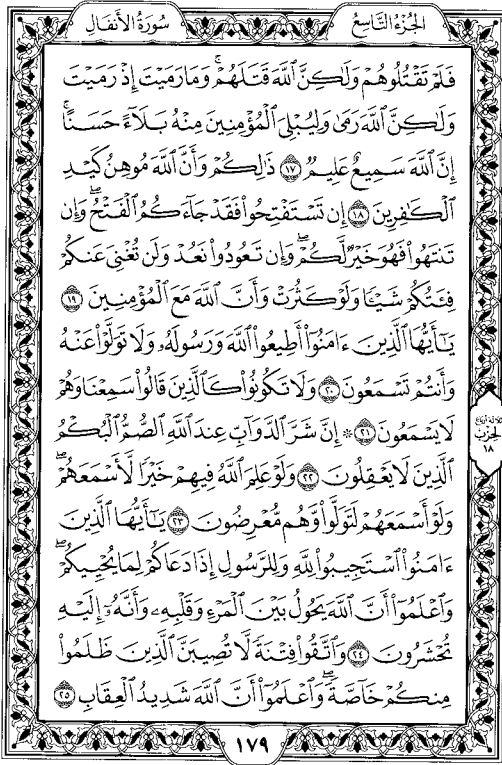 سُورَةُ الأَنفَالِ
الجُزْءُ التَّاسِعُ
فَلَمْ تَقْتُلُوهُمْ وَلَٰكِنَّ ٱللَّهَ قَتَلَهُمْ ۚ وَمَا رَمَيْتَ إِذْ رَمَيْتَ
وَلَٰكِنَّ ٱللَّهَ رَمَىٰ وَلِيُبْلِىَ ٱلْمُؤْمِنِينَ مِنْهُ بَلَآءً حَسَنًا ۚ
إِنَّ ٱللَّهَ سَمِيعٌ عَلِيمٌ ١٧ ذَٰلِكُمْ وَأَنَّ ٱللَّهَ مُوهِنُ كَيْدِ
ٱلْكَٰفِرِينَ ١٨ إِن تَسْتَفْتِحُوا۟ فَقَدْ جَآءَكُمُ ٱلْفَتْحُ ۖ وَإِن
تَنتَهُوا۟ فَهُوَ خَيْرٌ لَّكُمْ ۖ وَإِن تَعُودُوا۟ نَعُدْ وَلَن تُغْنِىَ عَنكُمْ
فِئَتُكُمْ شَيْـًٔا وَلَوْ كَثُرَتْ وَأَنَّ ٱللَّهَ مَعَ ٱلْمُؤْمِنِينَ ١٩
يَٰٓأَيُّهَا ٱلَّذِينَ ءَامَنُوٓا۟ أَطِيعُوا۟ ٱللَّهَ وَرَسُولَهُۥ وَلَا تَوَلَّوْا۟ عَنْهُ
وَأَنتُمْ تَسْمَعُونَ ٢٠ وَلَا تَكُونُوا۟ كَٱلَّذِينَ قَالُوا۟ سَمِعْنَا وَهُمْ
لَا يَسْمَعُونَ ٢١ ۞ إِنَّ شَرَّ ٱلدَّوَآبِّ عِندَ ٱللَّهِ ٱلصُّمُّ ٱلْبُكْمُ
ٱلَّذِينَ لَا يَعْقِلُونَ ٢٢ وَلَوْ عَلِمَ ٱللَّهُ فِيهِمْ خَيْرًا لَّأَسْمَعَهُمْ ۖ
وَلَوْ أَسْمَعَهُمْ لَتَوَلَّوا۟ وَّهُم مُّعْرِضُونَ ٢٣ يَٰٓأَيُّهَا ٱلَّذِينَ
ءَامَنُوا۟ ٱسْتَجِيبُوا۟ لِلَّهِ وَلِلرَّسُولِ إِذَا دَعَاكُمْ لِمَا يُحْيِيكُمْ ۖ
وَٱعْلَمُوٓا۟ أَنَّ ٱللَّهَ يَحُولُ بَيْنَ ٱلْمَرْءِ وَقَلْبِهِۦ وَأَنَّهُۥٓ إِلَيْهِ
تُحْشَرُونَ ٢٤ وَٱتَّقُوا۟ فِتْنَةً لَّا تُصِيبَنَّ ٱلَّذِينَ ظَلَمُوا۟
مِنكُمْ خَآصَّةً ۖ وَٱعْلَمُوٓا۟ أَنَّ ٱللَّهَ شَدِيدُ ٱلْعِقَابِ ٢٥
ثلاثة أرباع
الحزب
١٨
١٧٩